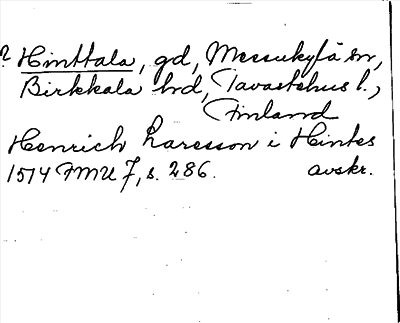 ? Hinttala, gd, Messukylä sn,
Birkkala hd, Tavastehus l.,
Finland
Henrich Larsson i Hintes
1514 FMU 7, s. 286. avskr.